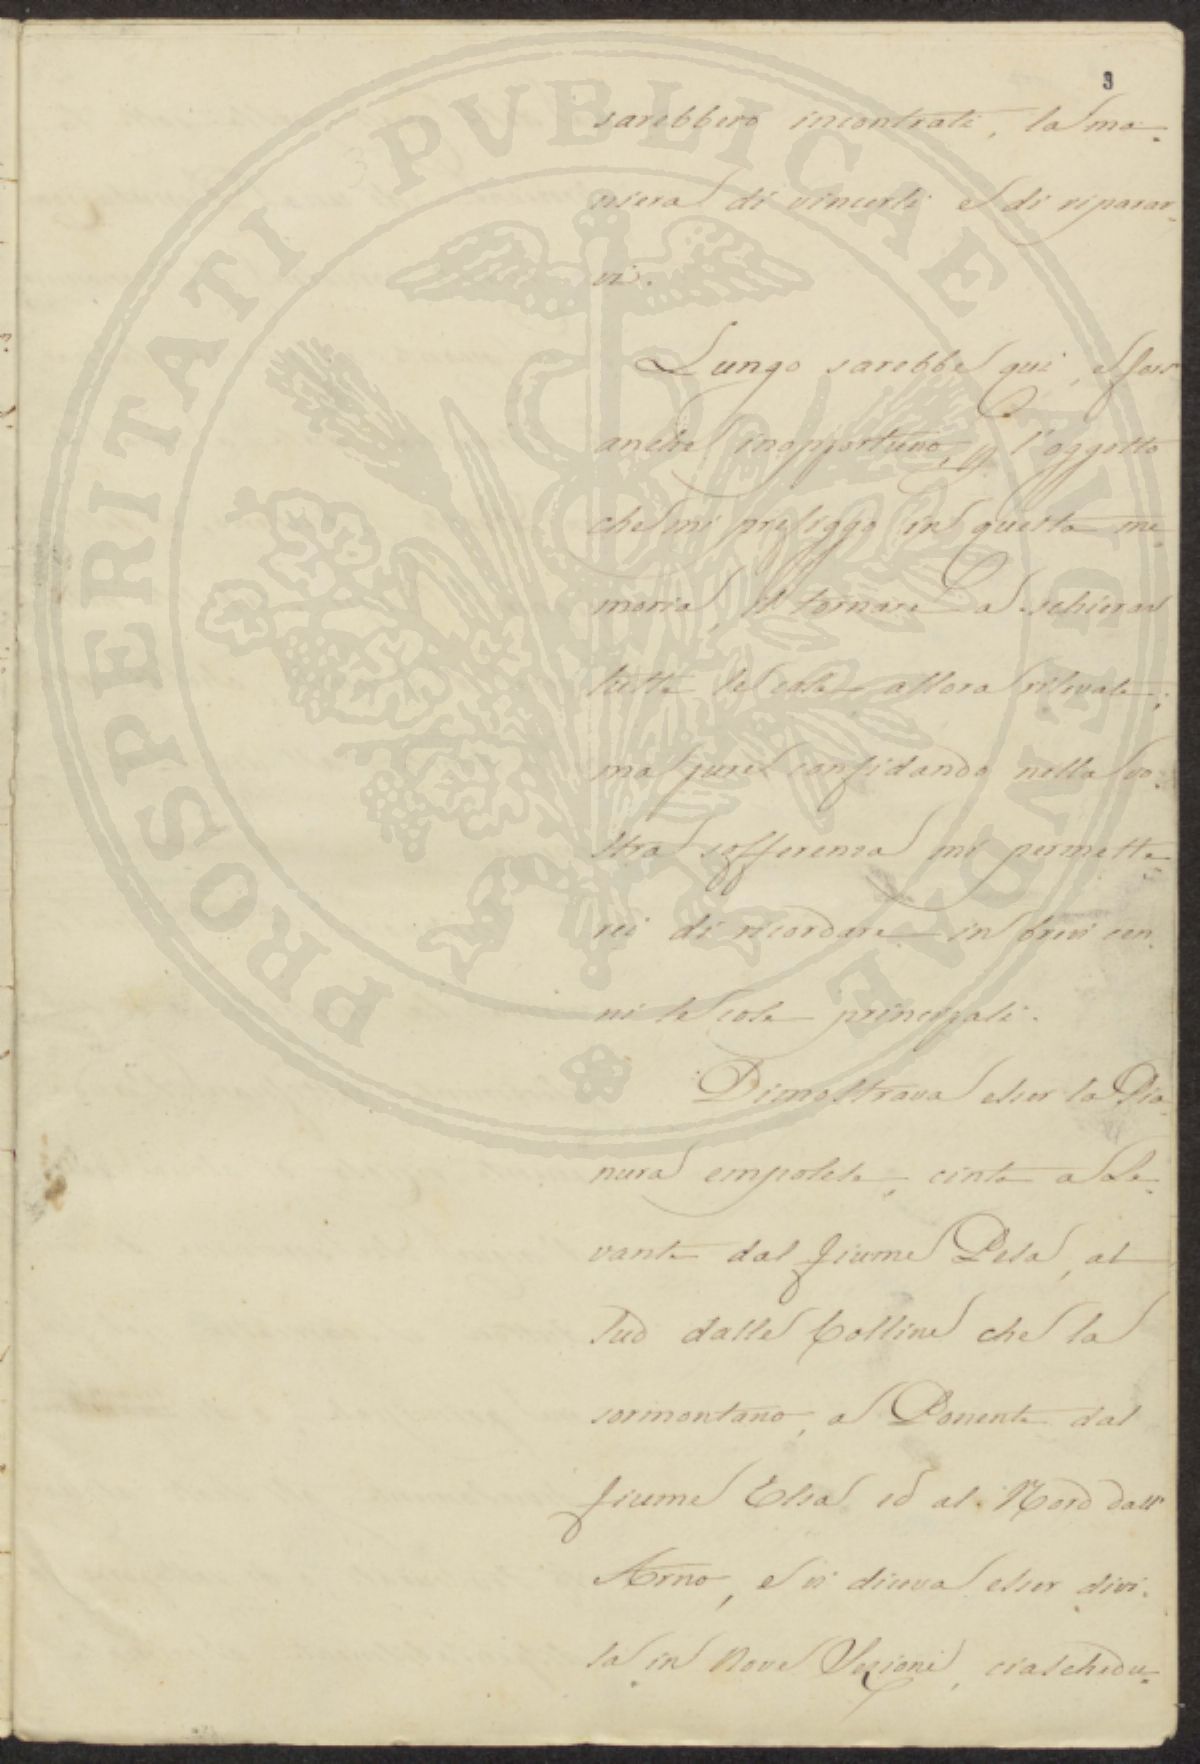 3
sarebbero incontrati, la ma-
niera di vincerli e di riparar-
vi.
Lungo sarebbe qui, e fors'
anche inopportuno, p l'oggetto
che mi prefiggo in questa me-
moria, il tornare a schierar
tutte le cose allora rilevate;
ma pure confidando nella vo-
stra sofferenza mi permette-
rei di ricordare in brevi cen-
ni le cose principali.
Dimostrava esser la Pia-
nura empolese, cinta a Le-
vante dal fiume Pesa, al
Sud dalle Colline che la
sormontano, a Ponente dal
fiume Elsa ed al Nord dall'
Arno, e vi diceva esser divi-
sa in Nove Sezioni, ciaschedu-
PROSPERITATI PVBLICAE AVGENDAE